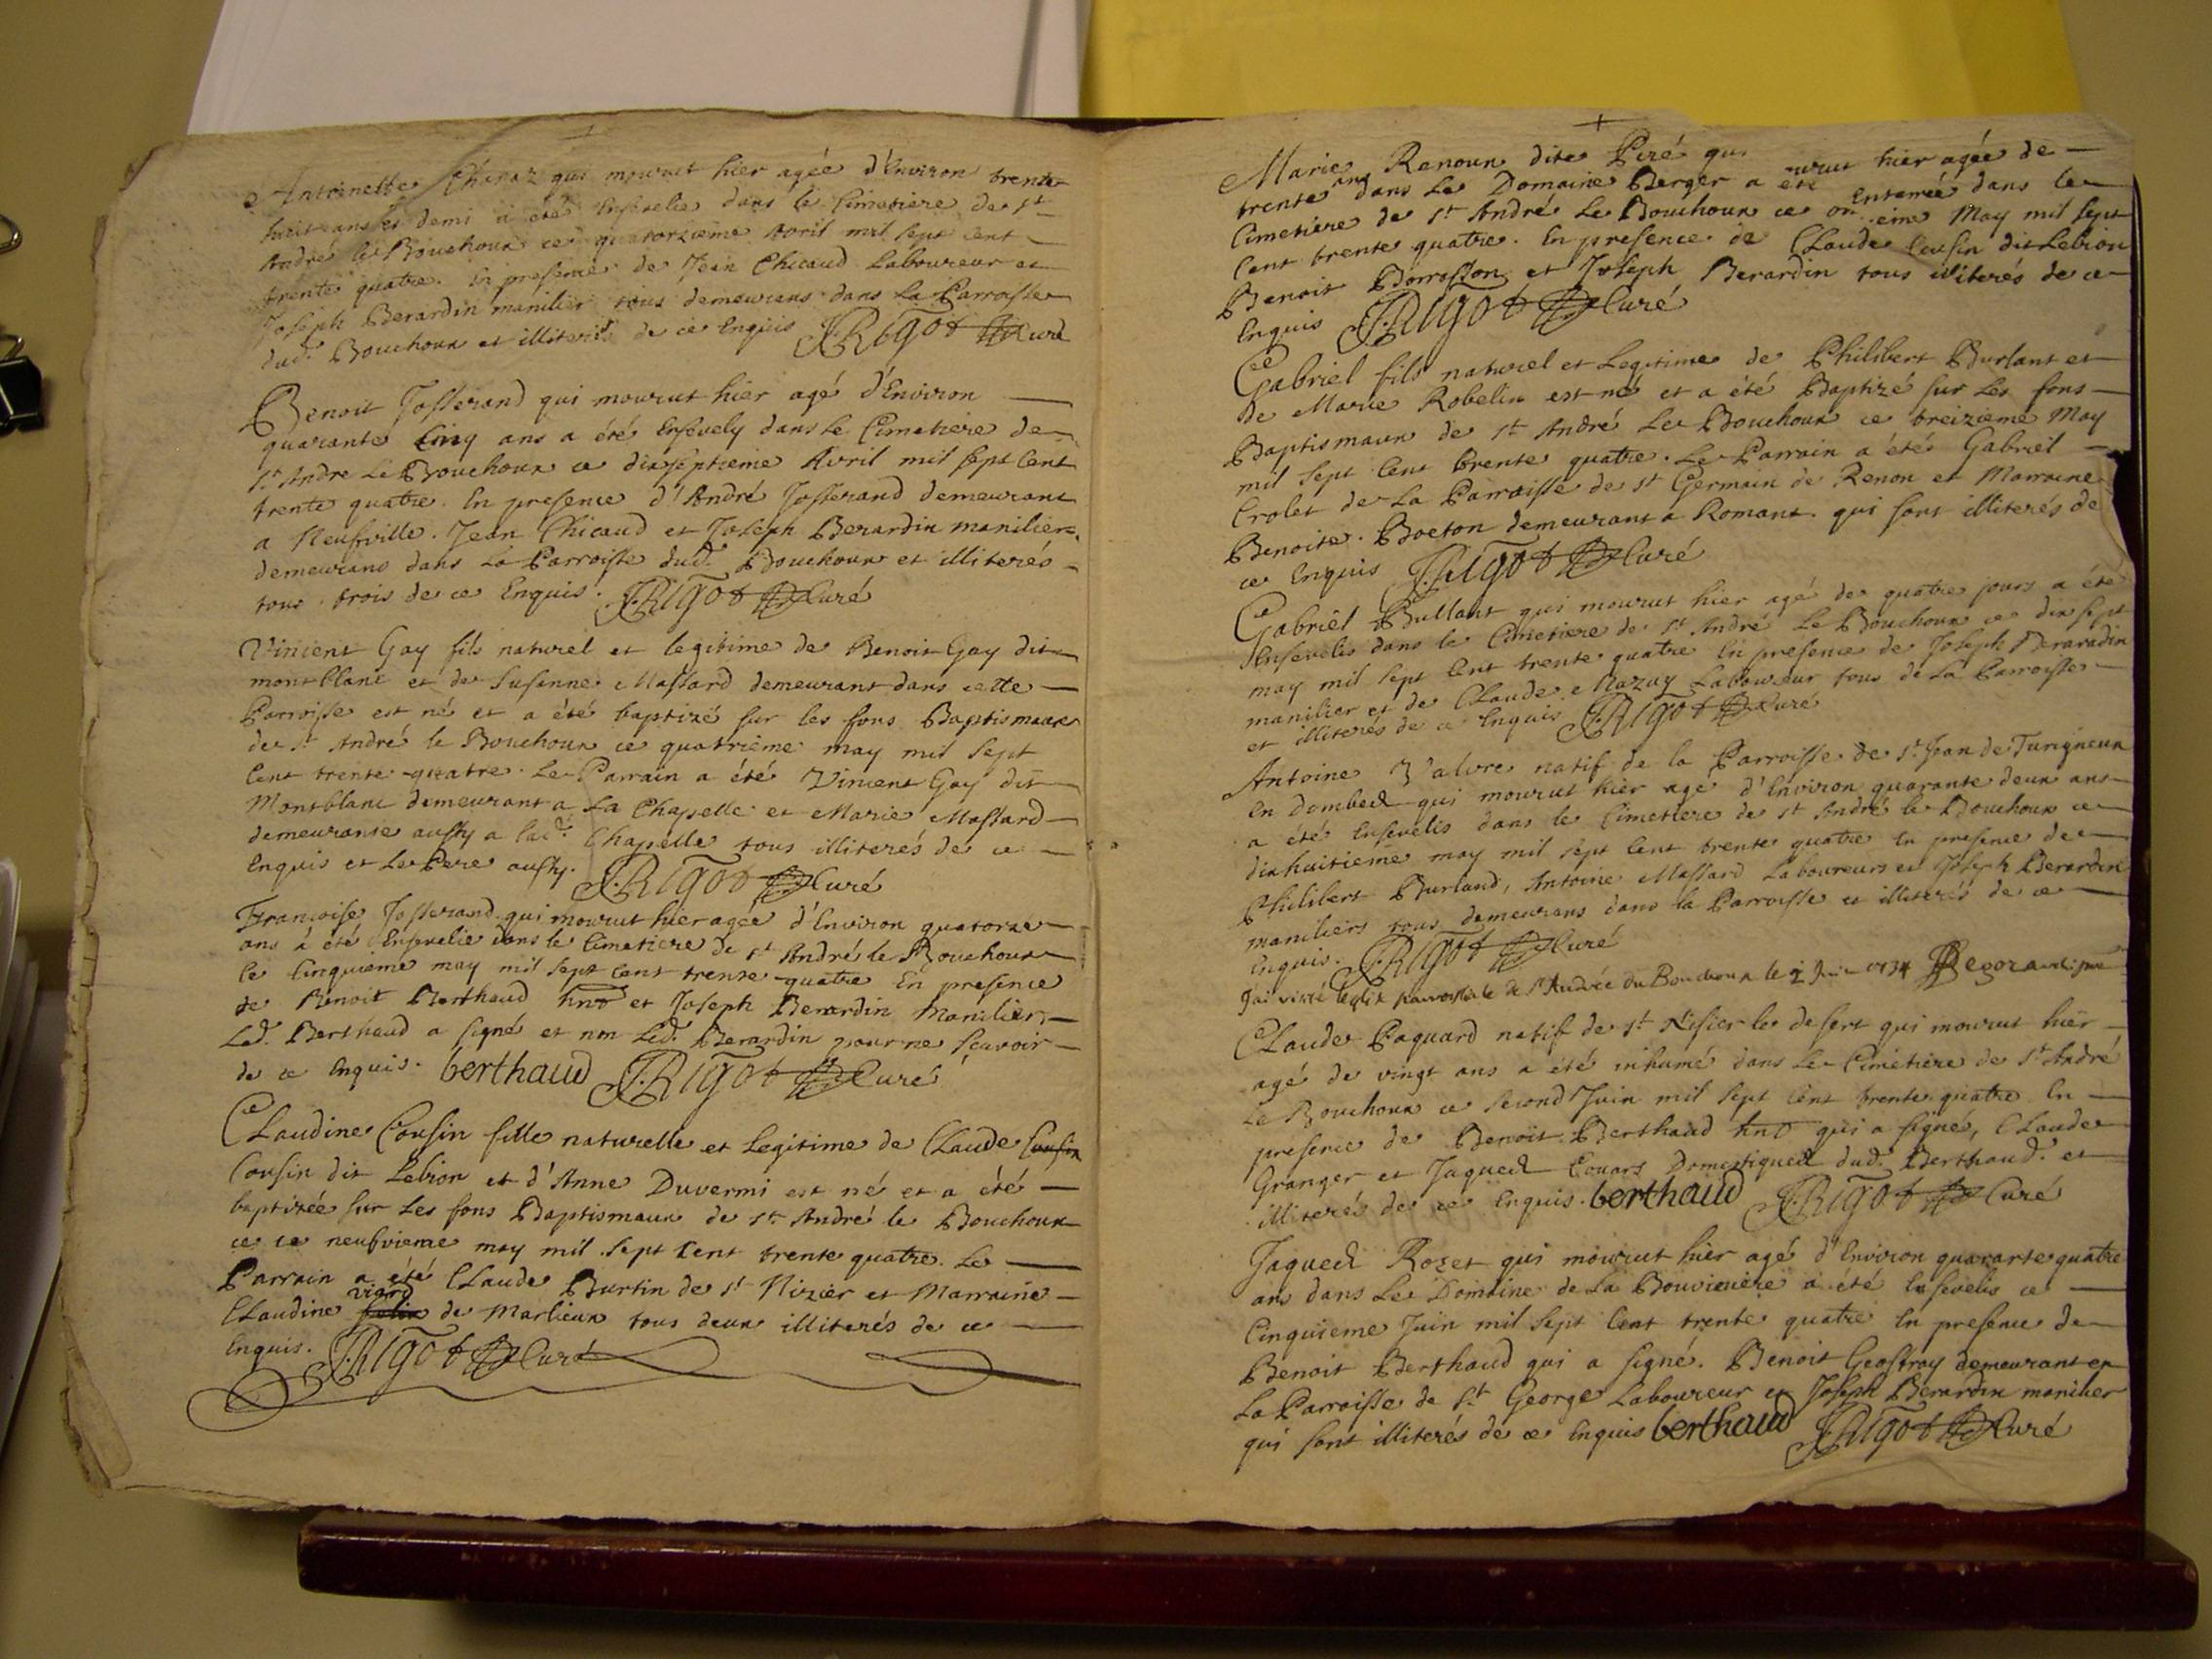 Antoinette Chanaz qui mourut hier agée d'Environ trente
huit ans et demi a été Ensevelie dans le Cimetiere de st
André le Bouchoux ce quatorzieme Avril mil sept cent
trente quatre. En presence de Jean Chicaud Laboureur et
Joseph Berardin manilier tous demeurans dans La Parroisse
dud. Bouchoux et illiterés de ce Enquis J. Rigot Curé
Benoit Josserand qui mourut hier agé d'Environ
quarante Cinq ans a été Ensevely dans Le Cimetiere de
st Andre Le Bouchoux ce dixseptieme Avril mil sept Cent
trente quatre. En presence d'André Josserand demeurant
a Neufville. Jean Chicaud et Joseph Berardin manilier
demeurans dans La Parroisse dud. Bouchoux et illiterés
tous trois de ce Enquis. J. Rigot Curé
Vincent Gay fils naturel et legitime de Benoit Gay dit
montblanc et de Susanne Massard demeurant dans cette
Parroisse est né et a été baptizé sur les fons Baptismaux
de st André le Bouchoux ce quatrieme may mil sept
Cent trente-quatre. Le Parrain a été Vincent Gay dit
Montblanc demeurant a La Chapelle et Marie Massard
demeurante aussy a lad. Chapelle tous illiterés de ce
Enquis et Le Pere aussy. J. Rigot Curé
Françoise Josserand qui mourut hier agée d'Environ quatorze
ans a été Ensevelie dans le Cimetiere de st André le Bouchoux
le Cinquieme may mil sept cent trente-quatre En presence
de Benoit Berthaud et Joseph Berardin Manilier,
Led. Berthaud a signé et non Led. Berardin pour ne sçavoir
de ce Enquis. berthaud J. Rigot Curé
Claudine Cousin fille naturelle et Legitime de Claude Cousin
Cousin dit Lebion et d'Anne Duvermi est né et a été
baptizée sur Les fons Baptismaux de st André le Bouchoux
ce ce neufvieme may mil sept Cent trente quatre. Le
Parrain a été Claude Burtin de st Nizier et Marraine
viard
Claudine de Marlieux tous deux illiterés de ce
Enquis. J. Rigot Curé
Marie Renoux dite Piré qui mourut hier agée de
trente ans dans Le Domaine Berger a été Enterrée dans le
Cimetiere de st André Le Bouchoux ce May mil sept
Cent trente quatre. En presence de Claude Cousin dit Lebion
Benoit Borrosson et Joseph Berardin tous illiterés de ce
Enquis J. Rigot Curé
Gabriel fils naturel et Legitime de Philibert Burlant et
de Marie Robelin est né et a été Baptizé sur Les fons
Baptismaux de st André Le Bouchoux ce treizieme May
mil sept Cent trente quatre. Le Parrain a étés Gabriel
Crolet de La Parroisse de st Germain de Renon et Marraine
Benoite Boeton demeurant a Romans. qui sont illiterés de
ce Enquis J. Rigot Curé
Gabriel Bullant qui mourut hier agé de quatre jours a été
Ensevelis dans le Cimetiere de st André Le Bouchoux ce dix sept
may mil sept Cent trente quatre En presence de Joseph Braradin
manilier et de Claude Nazuy Laboureur tous de La Parroisse
et illiterés de ce Enquis J. Rigot Curé
Antoine natif de la Parroisse de st Jean de Turigneux
En Dombes qui mourut hier agé d'Environ quarante deux ans
a été Ensevelis dans le Cimetiere de st André le Bouchoux ce
dixhuitieme may mil sept Cent trente quatre En presence de
Philibert Burland, Antoine Massard Laboureurs et Joseph Berardin
maniliers tous demeurans dans la Parroisse et illiterés de ce
Enquis. J. Rigot Curé
J'ai visité leglise parroissiale de st André du Bouchoux le 2 Juin 1734
Claude Paquard natif de st Nisier le desert qui mourut hier
agé de vingt ans a été inhumé dans Le Cimetiere de st André
Le Bouchoux ce second Juin mil sept Cent trente quatre En
presence de Benoit Berthaud qui a signé, Claude
Granger et Jaques Couars Domestiques dud. Berthaud. et
illiterés de ce Enquis. berthaud J. Rigot Curé
Jaques Rozet qui mourut hier agé d'Environ quarante quatre
ans dans Le Domaine de La Bouvieniere a été Ensevelis ce
Cinquieme Juin mil sept Cent trente quatre En presence de
Benoit Berthaud qui a signé. Benoit Geoffray demeurant en
La Parroisse de st George Laboureur et Joseph Berardin manilier
qui sont illiterés de ce Enquis berthaud J. Rigot Curé